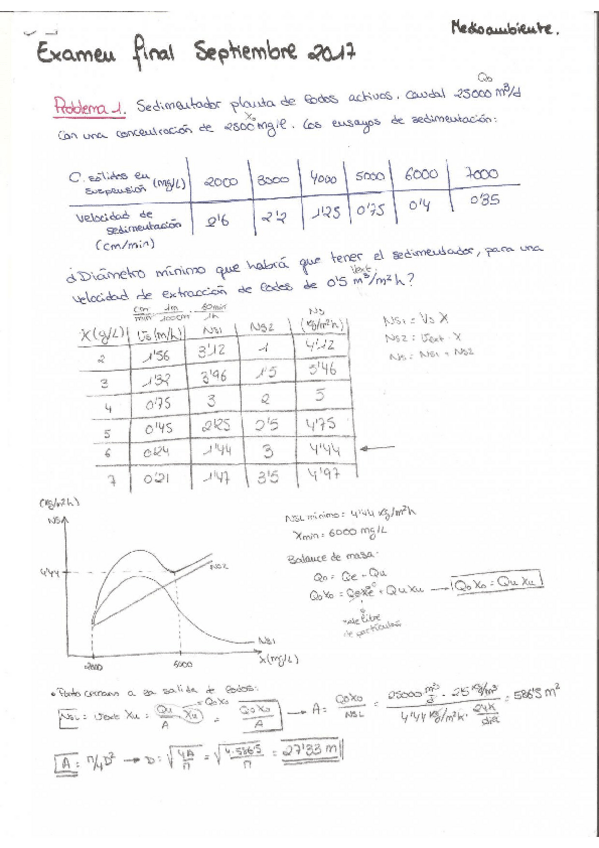 Medioambiente.
Examen final Septiembre 2017
Q₀
Problema 1. Sedimentador planta de lodos activos. Caudal 25000 m³/d
X₀
Con una concentración de 2500 mg/l. Los ensayos de sedimentación:
C. sólidos en suspensión (mg/L) | 2000 | 3000 | 4000 | 5000 | 6000 | 7000
Velocidad de sedimentación (cm/min) | 2'6 | 2'2 | 1'25 | 0'75 | 0'4 | 0'35
¿Diámetro mínimo que habrá que tener el sedimentador, para una
Vext
velocidad de extracción de lodos de 0'5 m³/m²h?
cm/min · 1m/100cm · 60min/1h
X(g/L) | V₀(m/h) | NS1 | NS2 | NS (kg/m²h)
2 | 1'56 | 3'12 | 1 | 4'12
3 | 1'32 | 3'96 | 1'5 | 5'46
4 | 0'75 | 3 | 2 | 5
5 | 0'45 | 2'25 | 2'5 | 4'75
6 | 0'24 | 1'44 | 3 | 4'44 ←
7 | 0'21 | 1'47 | 3'5 | 4'97
NS1 = V₀ X
NS2 = Vext · X
NS = NS1 + NS2
(kg/m²h)
NS
4'44
NS2
NS1
2000
6000
X(mg/L)
NSL mínimo = 4'44 kg/m²h
Xmin = 6000 mg/L
Balance de masa:
Q₀ = Qe + Qu
Q₀X₀ = QeXe + QuXu → Q₀X₀ = QuXu
0
sale libre
de partículas
• Punto cercano a la salida de lodos:
NSL = Vext Xu = Qu/A · Xu = Q₀X₀/A → A = Q₀X₀/NSL = 25000 m³/d · 2'5 kg/m³ / 4'44 kg/m²h · 24h/día = 586'5 m²
Q₀X₀
A = π/4 D² → D = √4A/π = √4·586'5/π = 27'33 m